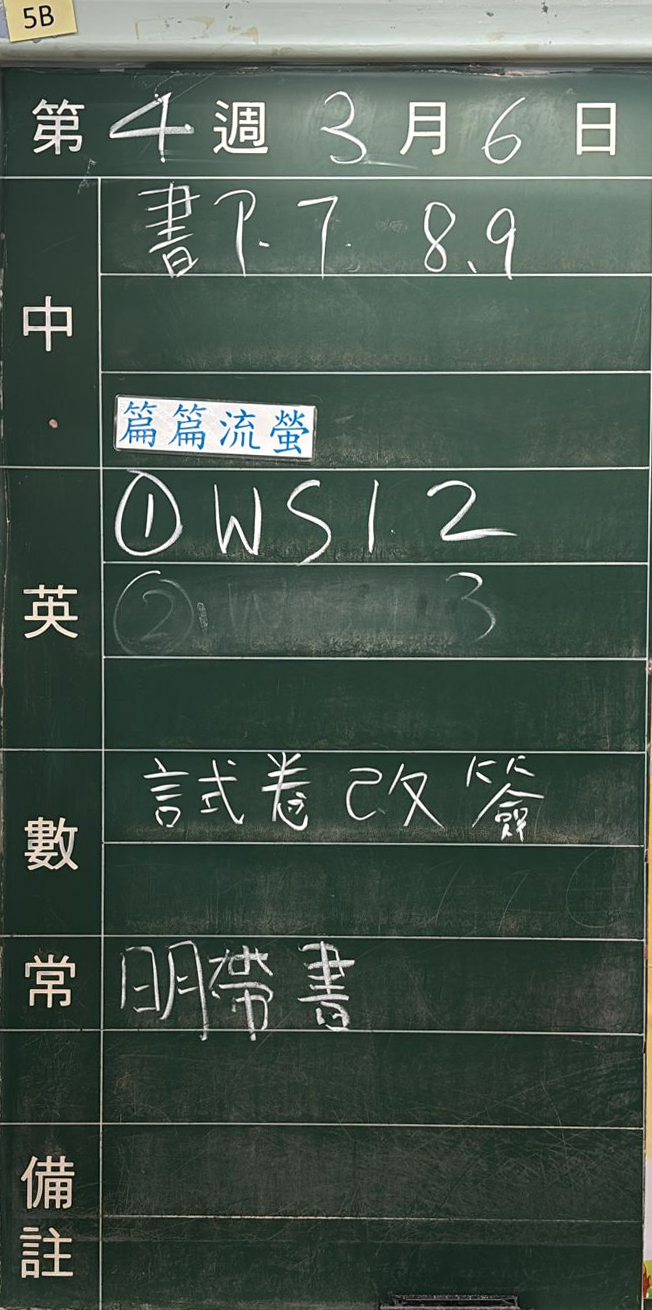 5B
第4週 3月6日
中
書P.7. 8、9
篇篇流螢
英
①WS1.2
②W 3
數
試卷改簽
常
明帶書
備註